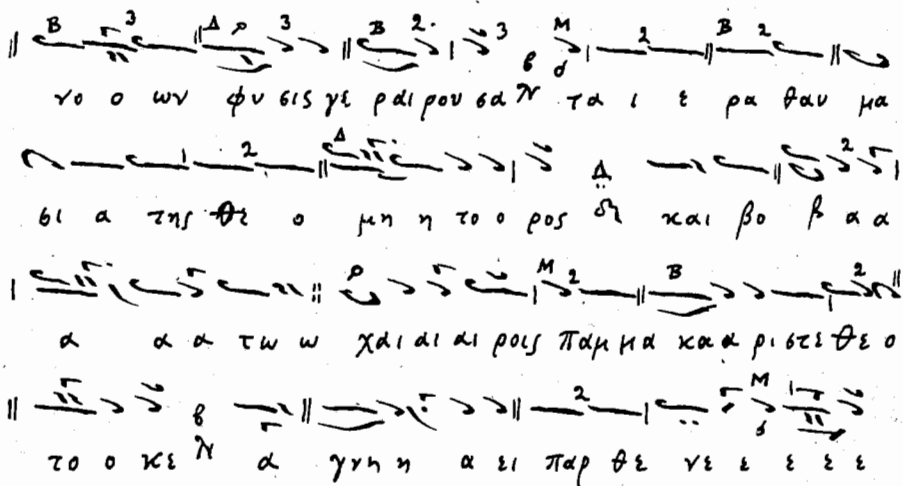 νο ο ων φυ σις γε ραι ρου σα τα ι ε ρα θαυ μα
σι α της θε ο μη η το ο ρος δι και βο β α α
α α α τω ω χαι αι αι ροις παμ μα κα α ρι στε θε ο
το ο κε α γνη η α ει παρ θε νε ε ε ε ε